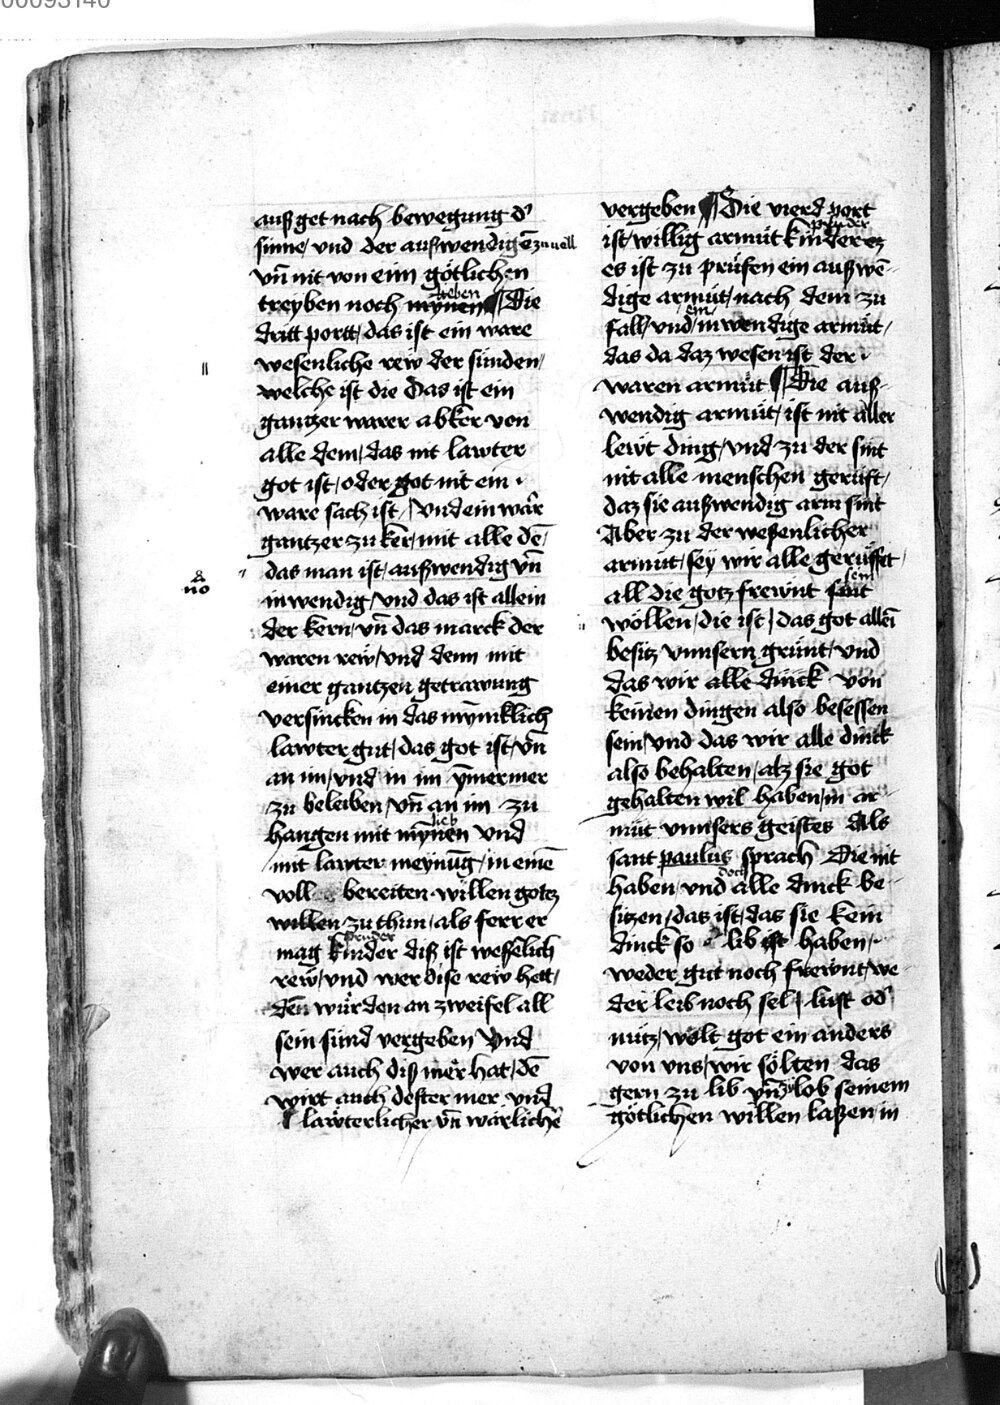 00093140
außget nach bewegung d'
sinne / vnd der außwendigē zuuell
vn̄ nit von eim götlichen
treyben noch mynen lieben ¶ Die
dritt portt / das ist ein ware
wesenliche rew der sünden /
welche ist die Das ist ein
gantzer warer abker von
alle dem / das nit lawter
got ist / oder got nit ein
ware sach ist / Vnd ein war
gantzer zu ker / mit alle dē
das man ist / außwendig vn̄
no
inwendig / vnd das ist allein
der kern / vn̄ das marck der
waren rew / vnd denn mit
einer gantzen getrawung
versincken in das mynnklich
lawter gut / das got ist / vn̄
an im / vnd in im ymermer
zu beleiben / vn̄ an im zu
hangen mit mynen lieb vnd
mit lawter meynūg / in einē
voll bereiten willen gotz
willen zu thun / als ferr er
mag kinder bruder diß ist wesselich
rew / vnd wer dise rew hett /
den würden an zweifel all
sein sünd vergeben Vnd
wer auch diß mer hat / dē
wirt auch dester mer vnd
lawterlicher vn̄ warlichē
vergeben ¶ Die vierd port
ist / willig armüt kinder
es ist zu prüfen ein außwē
dige armüt / nach dem zu
fall / vnd ein inwendige armüt /
das da daz wesen ist der
waren armüt ¶ Die auß
wendig armüt / ist nit aller
lewt ding / vnd zu der sint
nit alle menschen gerüft /
daz sie außwendig arm sint
Aber zu der weßenlicher
armüt / sey wir alle gerüffet
all die gotz frewnt sint sein
wöllen / die ist / das got allei
besitz vnnsern grünt / vnd
das wir alle dinck von
keinen dingen also besessen
sein / vnd das wir alle dinck
also behalten / alz sie got
gehalten wil haben / in ar
müt vnnsers geistes Als
sant paulus sprach Die nit
haben vnd doch alle dinck be
sitzen / das ist / das sie kein
dinck so lib haben /
weder gut noch frewnt / we
der leib noch sel / lust od'
nütz / wolt got ein anders
von vns / wir sölten das
gern zu lib vn̄ zu lob seinem
götlichen willen laßen / in